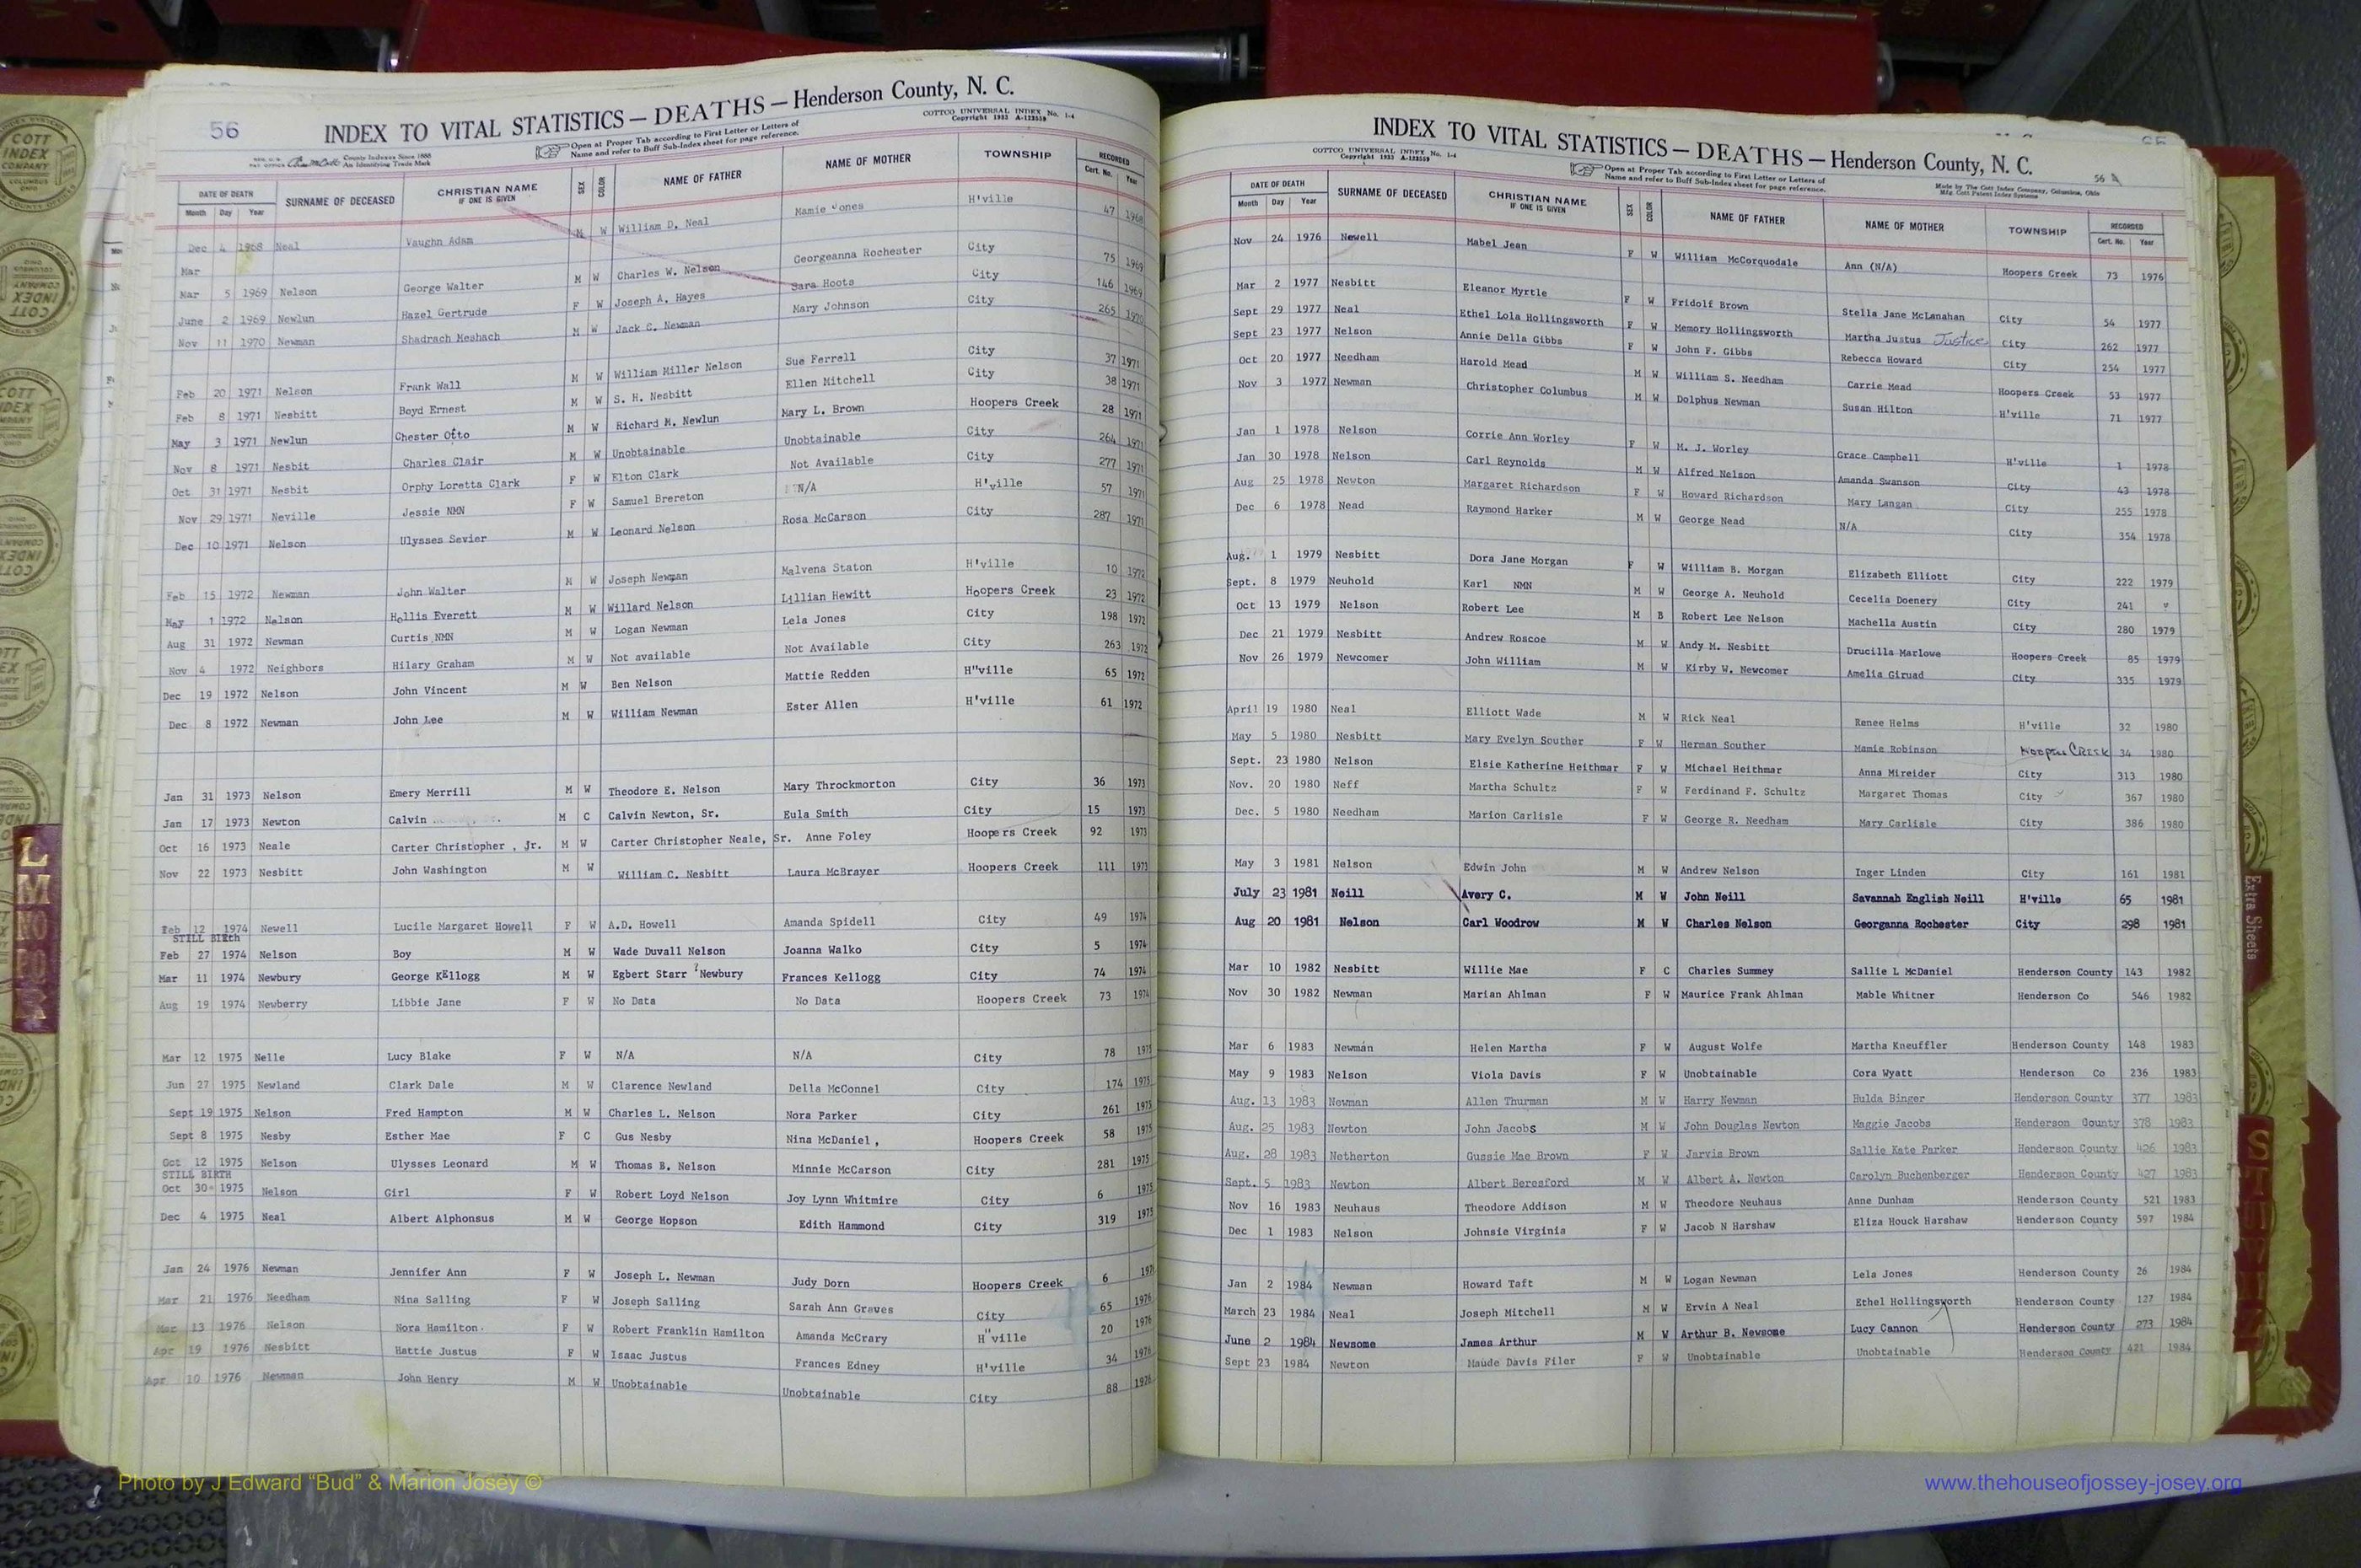 56
INDEX TO VITAL STATISTICS — DEATHS — Henderson County, N. C.
COTTCO UNIVERSAL INDEX No. 1-4
Copyright 1933 A-112559
County Indexes Since 1888
An Identifying Trade Mark
Open at Proper Tab according to First Letter or Letters of
Name and refer to Buff Sub-Index sheet for page reference.
DATE OF DEATH SURNAME OF DECEASED CHRISTIAN NAME IF ONE IS GIVEN SEX COLOR NAME OF FATHER NAME OF MOTHER TOWNSHIP RECORDED
Month Day Year Cert. No. Year
Dec 4 1968 Neal Vaughn Adam M W William D. Neal Mamie Jones H'ville 47 1968
Mar
Mar 5 1969 Nelson George Walter M W Charles W. Nelson Georgeanna Rochester City 75 1969
June 2 1969 Newlun Hazel Gertrude F W Joseph A. Hayes Sara Hoots City 146 1969
Nov 11 1970 Newman Shadrach Meshach M W Jack C. Newman Mary Johnson City 265 1970
Feb 20 1971 Nelson Frank Wall M W William Miller Nelson Sue Ferrell City 37 1971
Feb 8 1971 Nesbitt Boyd Ernest M W S. H. Nesbitt Ellen Mitchell City 38 1971
May 3 1971 Newlun Chester Otto M W Richard M. Newlun Mary L. Brown Hoopers Creek 28 1971
Nov 8 1971 Nesbit Charles Clair M W Unobtainable Unobtainable City 264 1971
Oct 31 1971 Nesbit Orphy Loretta Clark F W Elton Clark Not Available City 277 1971
Nov 29 1971 Neville Jessie NMN F W Samuel Brereton N/A H'ville 57 1971
Dec 10 1971 Nelson Ulysses Sevier M W Leonard Nelson Rosa McCarson City 287 1971
Feb 15 1972 Newman John Walter M W Joseph Newman Malvena Staton H'ville 10 1972
May 1 1972 Nelson Hollis Everett M W Willard Nelson Lillian Hewitt Hoopers Creek 23 1972
Aug 31 1972 Newman Curtis NMN M W Logan Newman Lela Jones City 198 1972
Nov 4 1972 Neighbors Hilary Graham M W Not available Not Available City 263 1972
Dec 19 1972 Nelson John Vincent M W Ben Nelson Mattie Redden H"ville 65 1972
Dec 8 1972 Newman John Lee M W William Newman Ester Allen H'ville 61 1972
Jan 31 1973 Nelson Emery Merrill M W Theodore E. Nelson Mary Throckmorton City 36 1973
Jan 17 1973 Newton Calvin M C Calvin Newton, Sr. Eula Smith City 15 1973
Oct 16 1973 Neale Carter Christopher , Jr. M W Carter Christopher Neale, Sr. Anne Foley Hoopers Creek 92 1973
Nov 22 1973 Nesbitt John Washington M W William C. Nesbitt Laura McBrayer Hoopers Creek 111 1973
Feb 12 1974 Newell Lucile Margaret Howell F W A.D. Howell Amanda Spidell City 49 1974
STILL BIRTH
Feb 27 1974 Nelson Boy M W Wade Duvall Nelson Joanna Walko City 5 1974
Mar 11 1974 Newbury George Kellogg M W Egbert Starr Newbury Frances Kellogg City 74 1974
Aug 19 1974 Newberry Libbie Jane F W No Data No Data Hoopers Creek 73 1974
Mar 12 1975 Nelle Lucy Blake F W N/A N/A City 78 1975
Jun 27 1975 Newland Clark Dale M W Clarence Newland Della McConnel City 174 1975
Sept 19 1975 Nelson Fred Hampton M W Charles L. Nelson Nora Parker City 261 1975
Sept 8 1975 Nesby Esther Mae F C Gus Nesby Nina McDaniel, Hoopers Creek 58 1975
Oct 12 1975 Nelson Ulysses Leonard M W Thomas B. Nelson Minnie McCarson City 281 1975
STILL BIRTH
Oct 30 1975 Nelson Girl F W Robert Loyd Nelson Joy Lynn Whitmire City 6 1975
Dec 4 1975 Neal Albert Alphonsus M W George Hopson Edith Hammond City 319 1975
Jan 24 1976 Newman Jennifer Ann F W Joseph L. Newman Judy Dorn Hoopers Creek 6 1976
Mar 21 1976 Needham Nina Salling F W Joseph Salling Sarah Ann Graves City 65 1976
Mar 13 1976 Nelson Nora Hamilton F W Robert Franklin Hamilton Amanda McCrary H"ville 20 1976
Apr 19 1976 Nesbitt Hattie Justus F W Isaac Justus Frances Edney H'ville 34 1976
Apr 10 1976 Newman John Henry M W Unobtainable Unobtainable City 88 1976
INDEX TO VITAL STATISTICS — DEATHS — Henderson County, N. C.
COTTCO UNIVERSAL INDEX No. 1-4
Copyright 1933 A-112559
Open at Proper Tab according to First Letter or Letters of
Name and refer to Buff Sub-Index sheet for page reference.
56 A
Made by The Cott Index Company, Columbus, Ohio
Mfg. Cott Patent Index Systems
DATE OF DEATH SURNAME OF DECEASED CHRISTIAN NAME IF ONE IS GIVEN SEX COLOR NAME OF FATHER NAME OF MOTHER TOWNSHIP RECORDED
Month Day Year Cert. No. Year
Nov 24 1976 Newell Mabel Jean F W William McCorquodale Ann (N/A) Hoopers Creek 73 1976
Mar 2 1977 Nesbitt Eleanor Myrtle F W Fridolf Brown Stella Jane McLanahan City 54 1977
Sept 29 1977 Neal Ethel Lola Hollingsworth F W Memory Hollingsworth Martha Justus Justice City 262 1977
Sept 23 1977 Nelson Annie Della Gibbs F W John F. Gibbs Rebecca Howard City 254 1977
Oct 20 1977 Needham Harold Mead M W William S. Needham Carrie Mead Hoopers Creek 53 1977
Nov 3 1977 Newman Christopher Columbus M W Dolphus Newman Susan Hilton H'ville 71 1977
Jan 1 1978 Nelson Corrie Ann Worley F W M. J. Worley Grace Campbell H'ville 1 1978
Jan 30 1978 Nelson Carl Reynolds M W Alfred Nelson Amanda Swanson City 43 1978
Aug 25 1978 Newton Margaret Richardson F W Howard Richardson Mary Langan City 255 1978
Dec 6 1978 Nead Raymond Harker M W George Nead N/A City 354 1978
Aug. 1 1979 Nesbitt Dora Jane Morgan F W William B. Morgan Elizabeth Elliott City 222 1979
Sept. 8 1979 Neuhold Karl NMN M W George A. Neuhold Cecelia Doenery City 241 "
Oct 13 1979 Nelson Robert Lee M B Robert Lee Nelson Machella Austin City 280 1979
Dec 21 1979 Nesbitt Andrew Roscoe M W Andy M. Nesbitt Drucilla Marlowe Hoopers Creek 85 1979
Nov 26 1979 Newcomer John William M W Kirby W. Newcomer Amelia Giruad City 335 1979
April 19 1980 Neal Elliott Wade M W Rick Neal Renee Helms H'ville 32 1980
May 5 1980 Nesbitt Mary Evelyn Souther F W Herman Souther Mamie Robinson Hoopers Creek 34 1980
Sept. 23 1980 Nelson Elsie Katherine Heithmar F W Michael Heithmar Anna Mireider City 313 1980
Nov. 20 1980 Neff Martha Schultz F W Ferdinand F. Schultz Margaret Thomas City 367 1980
Dec. 5 1980 Needham Marion Carlisle F W George R. Needham Mary Carlisle City 386 1980
May 3 1981 Nelson Edwin John M W Andrew Nelson Inger Linden City 161 1981
July 23 1981 Neill Avery C. M W John Neill Savannah English Neill H'ville 65 1981
Aug 20 1981 Nelson Carl Woodrow M W Charles Nelson Georganna Rochester City 298 1981
Mar 10 1982 Nesbitt Willie Mae F C Charles Summey Sallie L McDaniel Henderson County 143 1982
Nov 30 1982 Newman Marian Ahlman F W Maurice Frank Ahlman Mable Whitner Henderson Co 546 1982
Mar 6 1983 Newman Helen Martha F W August Wolfe Martha Kneuffler Henderson County 148 1983
May 9 1983 Nelson Viola Davis F W Unobtainable Cora Wyatt Henderson Co 236 1983
Aug. 13 1983 Newman Allen Thurman M W Harry Newman Hulda Binger Henderson County 377 1983
Aug. 25 1983 Newton John Jacobs M W John Douglas Newton Maggie Jacobs Henderson County 378 1983
Aug. 28 1983 Netherton Gussie Mae Brown F W Jarvis Brown Sallie Kate Parker Henderson County 426 1983
Sept. 5 1983 Newton Albert Beresford M W Albert A. Newton Carolyn Buchenberger Henderson County 427 1983
Nov 16 1983 Neuhaus Theodore Addison M W Theodore Neuhaus Anne Dunham Henderson County 521 1983
Dec 1 1983 Nelson Johnsie Virginia F W Jacob N Harshaw Eliza Houck Harshaw Henderson County 597 1984
Jan 2 1984 Newman Howard Taft M W Logan Newman Lela Jones Henderson County 26 1984
March 23 1984 Neal Joseph Mitchell M W Ervin A Neal Ethel Hollingsworth Henderson County 127 1984
June 2 1984 Newsome James Arthur M W Arthur B. Newsome Lucy Cannon Henderson County 273 1984
Sept 23 1984 Newton Maude Davis Filer F W Unobtainable Unobtainable Henderson County 421 1984
COTT INDEX COMPANY COLUMBUS OHIO
L
M
Extra Sheets
S
Photo by J Edward “Bud” & Marion Josey ©
www.thehouseofjossey-josey.org